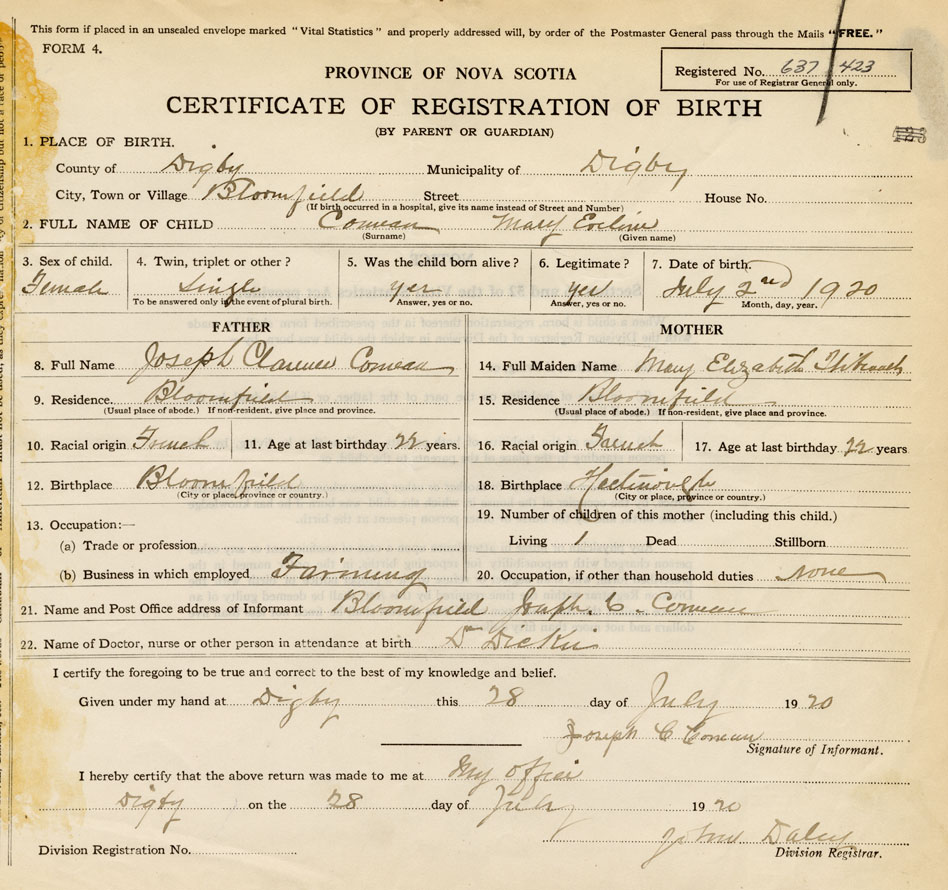 This form if placed in an unsealed envelope marked "Vital Statistics" and properly addressed will, by order of the Postmaster General pass through the Mails "FREE."
FORM 4.
Registered No. 637 423
For use of Registrar General only.
PROVINCE OF NOVA SCOTIA
CERTIFICATE OF REGISTRATION OF BIRTH
(BY PARENT OR GUARDIAN)
423
1. PLACE OF BIRTH.
County of Digby Municipality of Digby
City, Town or Village Bloomfield Street House No.
(If birth occurred in a hospital, give its name instead of Street and Number)
2. FULL NAME OF CHILD Comeau Mary Eveline
(Surname) (Given name)
3. Sex of child. 4. Twin, triplet or other? 5. Was the child born alive? 6. Legitimate? 7. Date of birth.
Female Single yes yes July 2nd 1920
To be answered only in the event of plural birth. Answer, yes or no. Answer, yes or no. Month, day, year.
FATHER
8. Full Name Joseph Clarence Comeau
9. Residence. Bloomfield
(Usual place of abode.) If non-resident, give place and province.
10. Racial origin French 11. Age at last birthday 22 years.
12. Birthplace Bloomfield
(City or place, province or country.)
13. Occupation:—
(a) Trade or profession
(b) Business in which employed Farming
MOTHER
14. Full Maiden Name Mary Elizabeth
15. Residence Bloomfield
(Usual place of abode.) If non-resident, give place and province.
16. Racial origin French 17. Age at last birthday 22 years
18. Birthplace
(City or place, province or country.)
19. Number of children of this mother (including this child.)
Living 1 Dead Stillborn
20. Occupation, if other than household duties None
21. Name and Post Office address of Informant Bloomfield Joseph. C. Comeau
22. Name of Doctor, nurse or other person in attendance at birth Dr Dickie
I certify the foregoing to be true and correct to the best of my knowledge and belief.
Given under my hand at Digby this 28 day of July 1920
Joseph C Comeau
Signature of Informant.
I hereby certify that the above return was made to me at My office
Digby on the 28 day of July 1920
John Daley
Division Registration No. Division Registrar.